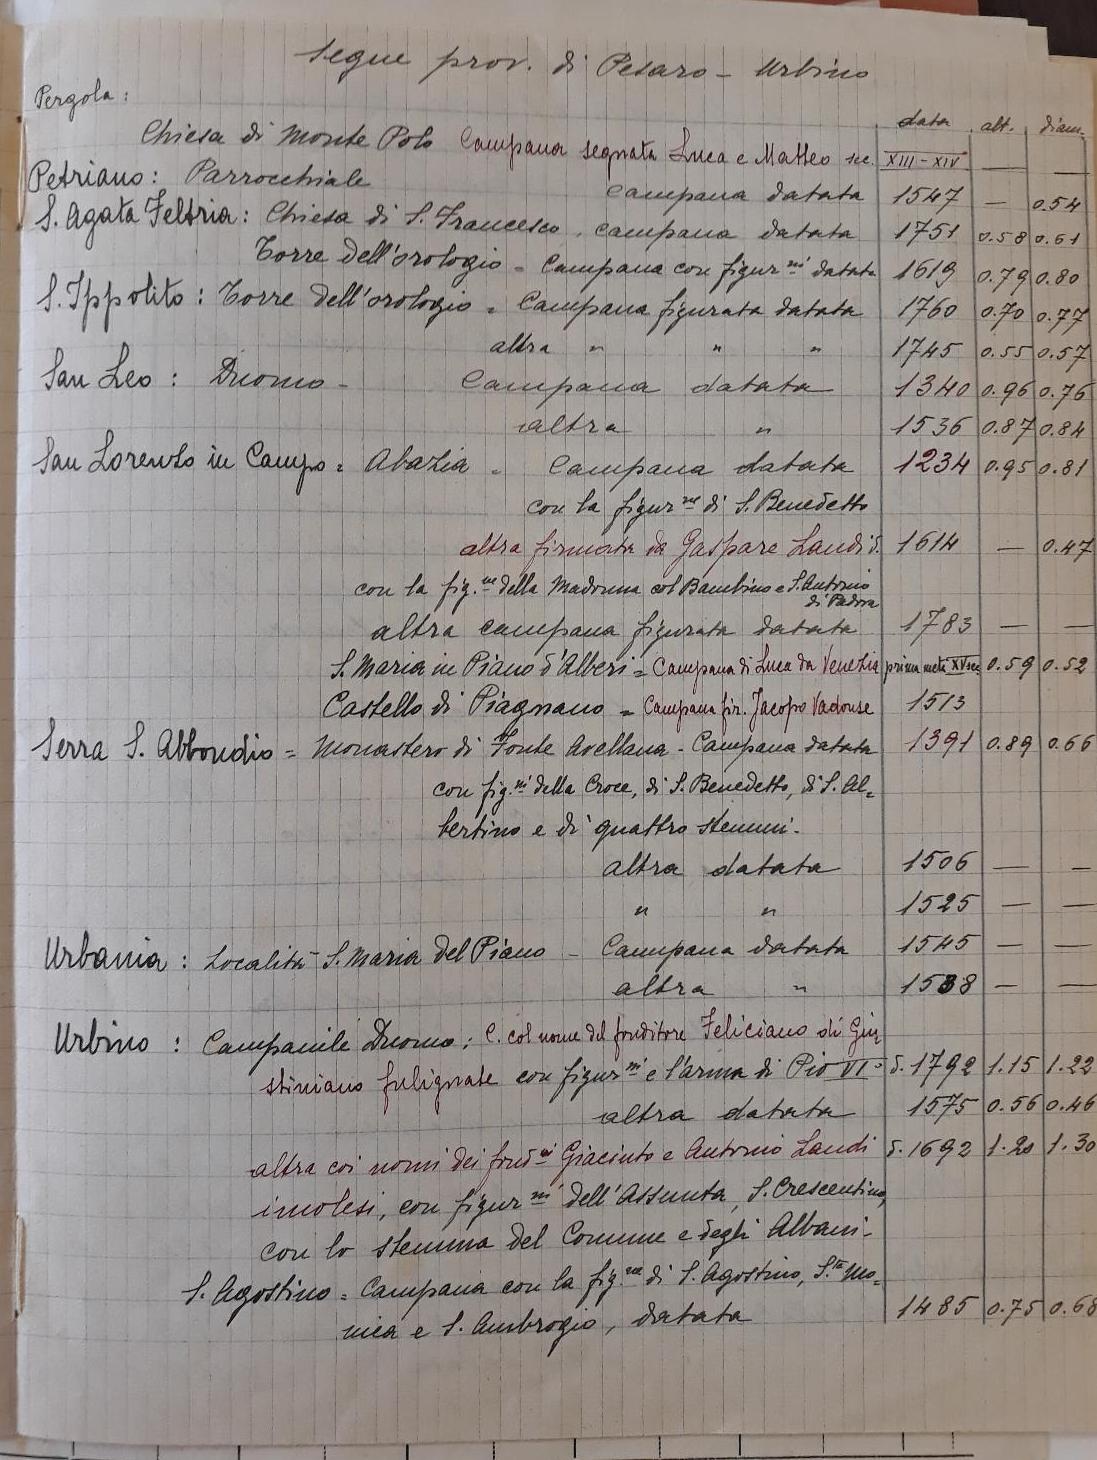 Segue prov. di Pesaro - Urbino
Pergola:
data alt. diam.
Chiesa di Monte Polo Campana segnata Luca e Matteo sec. XIII-XIV — —
Petriano: Parrocchiale Campana datata 1547 — 0.54
S. Agata Feltria: Chiesa di S. Francesco. campana datata 1751 0.58 0.61
Torre dell'orologio = Campana con figur.ni datata 1619 0.79 0.80
S. Ippolito: Torre dell'orologio = Campana figurata datata 1760 0.70 0.77
altra " " " 1745 0.55 0.57
San Leo: Duomo - Campana datata 1340 0.96 0.76
altra " 1536 0.87 0.84
San Lorenzo in Campo = Abazia = Campana datata 1234 0.95 0.81
con la figur.ne di S. Benedetto
altra firmata da Gaspare Landi d. 1614 — 0.47
con la fig.ne della Madonna col Bambino e S. Antonio
di Padova
altra campana figurata datata 1783 — —
S. Maria in Piano d'Alberi = Campana di Luca da Venezia prima metà XV sec. 0.59 0.52
Castello di Piagnano = Campana fir. Jacopo 1513
Serra S. Abbondio = Monastero di Fonte Avellana - Campana datata 1391 0.89 0.66
con fig.ni della Croce, di S. Benedetto, di S. Al=
bertino e di quattro stemmi.
altra datata 1506 — —
" " 1525 — —
Urbania: Località S. Maria del Piano - Campana datata 1545 — —
altra " 1538 — —
Urbino: Campanile Duomo: C. col nome del fonditore Feliciano di Giu
stiniano fulignate con figur.ni e l'arma di Pio VI° d. 1792 1.15 1.22
altra datata 1575 0.56 0.46
altra coi nomi dei fond.ri Giacinto e Antonio Landi d. 1692 1.20 1.30
imolesi, con figur.ni dell'Assunta, S. Crescentino,
con lo stemma del Comune e degli Albani.
S. Agostino = Campana con la fig.ne di S. Agostino, S.ta Mo=
nica e S. Ambrogio, datata 1485 0.75 0.68